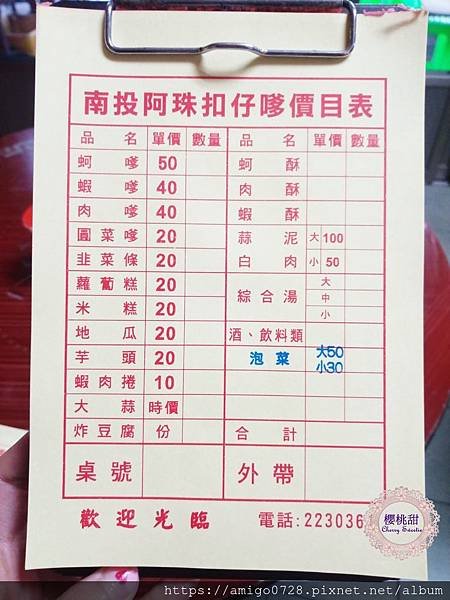 南投阿珠扣仔嗲價目表
品名 單價 數量 品名 單價 數量
蚵嗲 50 蚵酥
蝦嗲 40 肉酥
肉嗲 40 蝦酥
圓菜嗲 20 蒜泥 大 100
韭菜條 20 白肉 小 50
蘿蔔糕 20 綜合湯 大
米糕 20 中
小
地瓜 20 酒、飲料類
芋頭 20 泡菜 大50
小30
蝦肉捲 10
大蒜 時價
炸豆腐 份 合計
桌號 外帶
歡迎光臨 電話:223036
櫻桃甜
Cherry Sweetin
https://amigo0728.pixnet.net/album